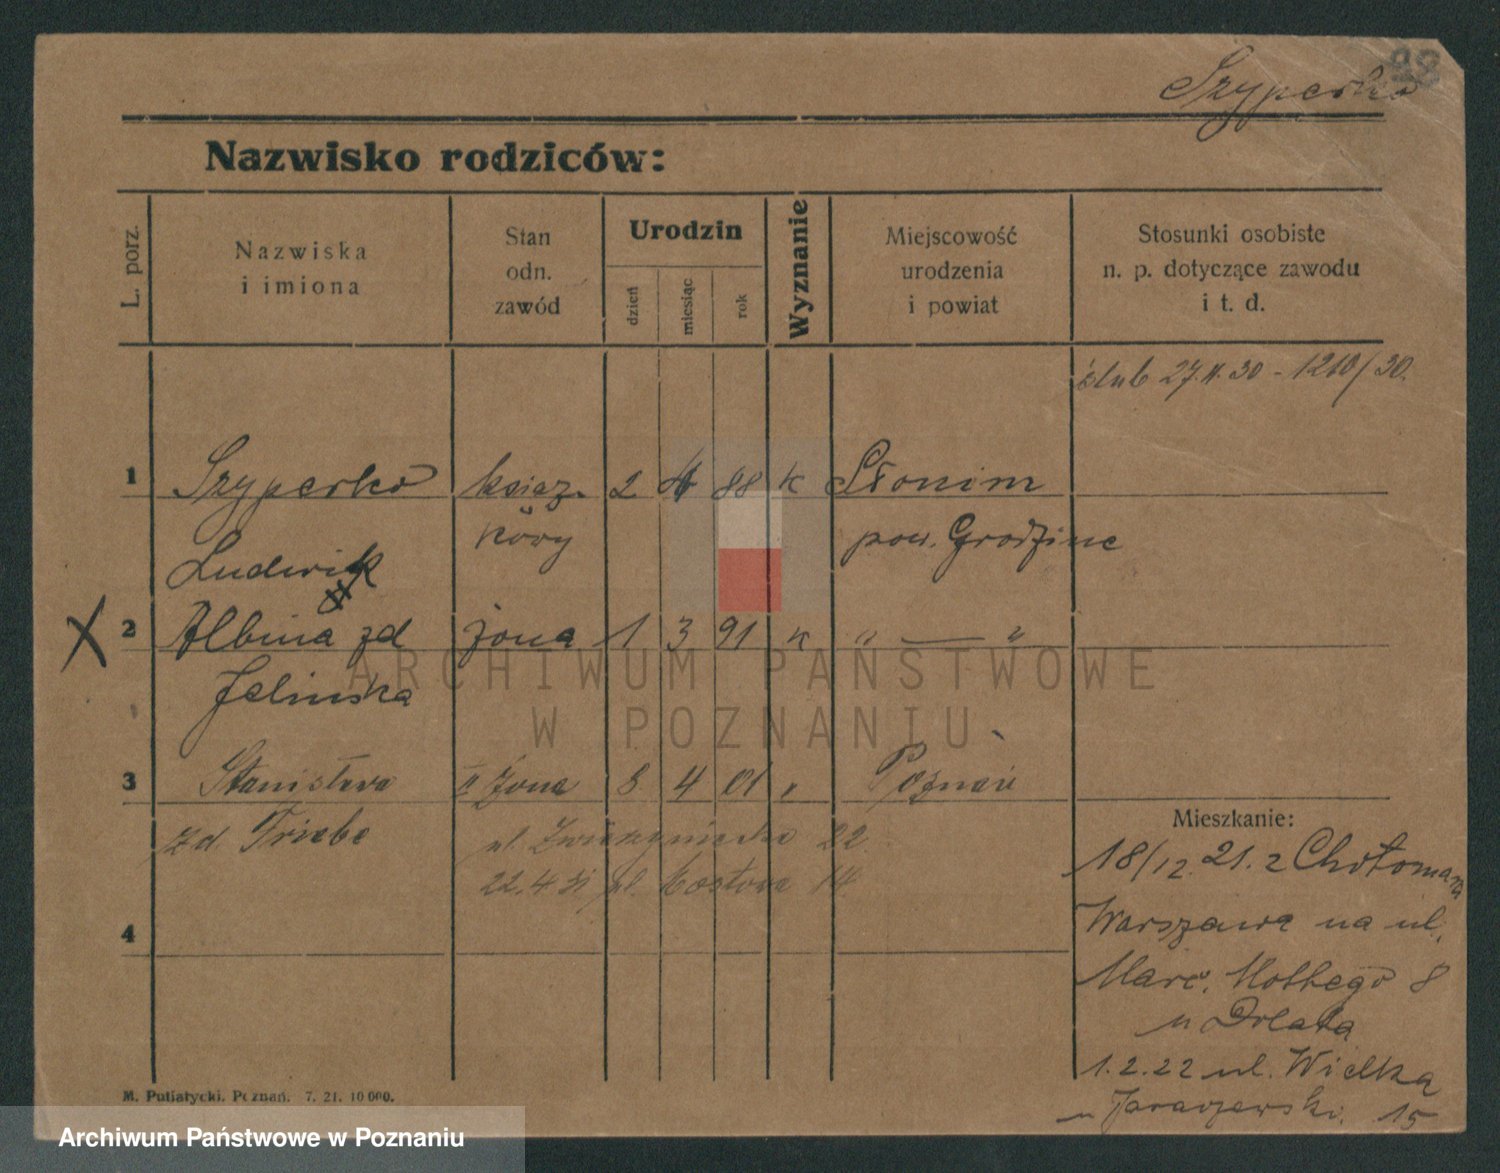 99
Szyperko
Nazwisko rodziców:
L. porz.
Nazwiska
i imiona
Stan
odn.
zawód
Urodzin
dzień
miesiąc
rok
Wyznanie
Miejscowość
urodzenia
i powiat
Stosunki osobiste
n. p. dotyczące zawodu
i t. d.
ślub 27. 30 - 1210/30.
1 Szyperko 2 88 k Słonim
kowy pow. Grodzine
Ludwik
2 Albina zd żona 1 3 91 k " — "
Jelinska
ARCHIWUM PAŃSTWOWE
W POZNANIU
3 Stanisława II żona 8 4 01 " Poznań
zd. Triebe ul. Zwierzyniecka 22
22.4 31 ul. 14
4
Mieszkanie:
18/12. 21. z Chotomar
Warszawa na ul.
Marc. Mottego 8
u Dolata
1.2.22 ul. Wielka
u 15
M. Putiatycki. Poznań. 7. 21. 10 000.
Archiwum Państwowe w Poznaniu